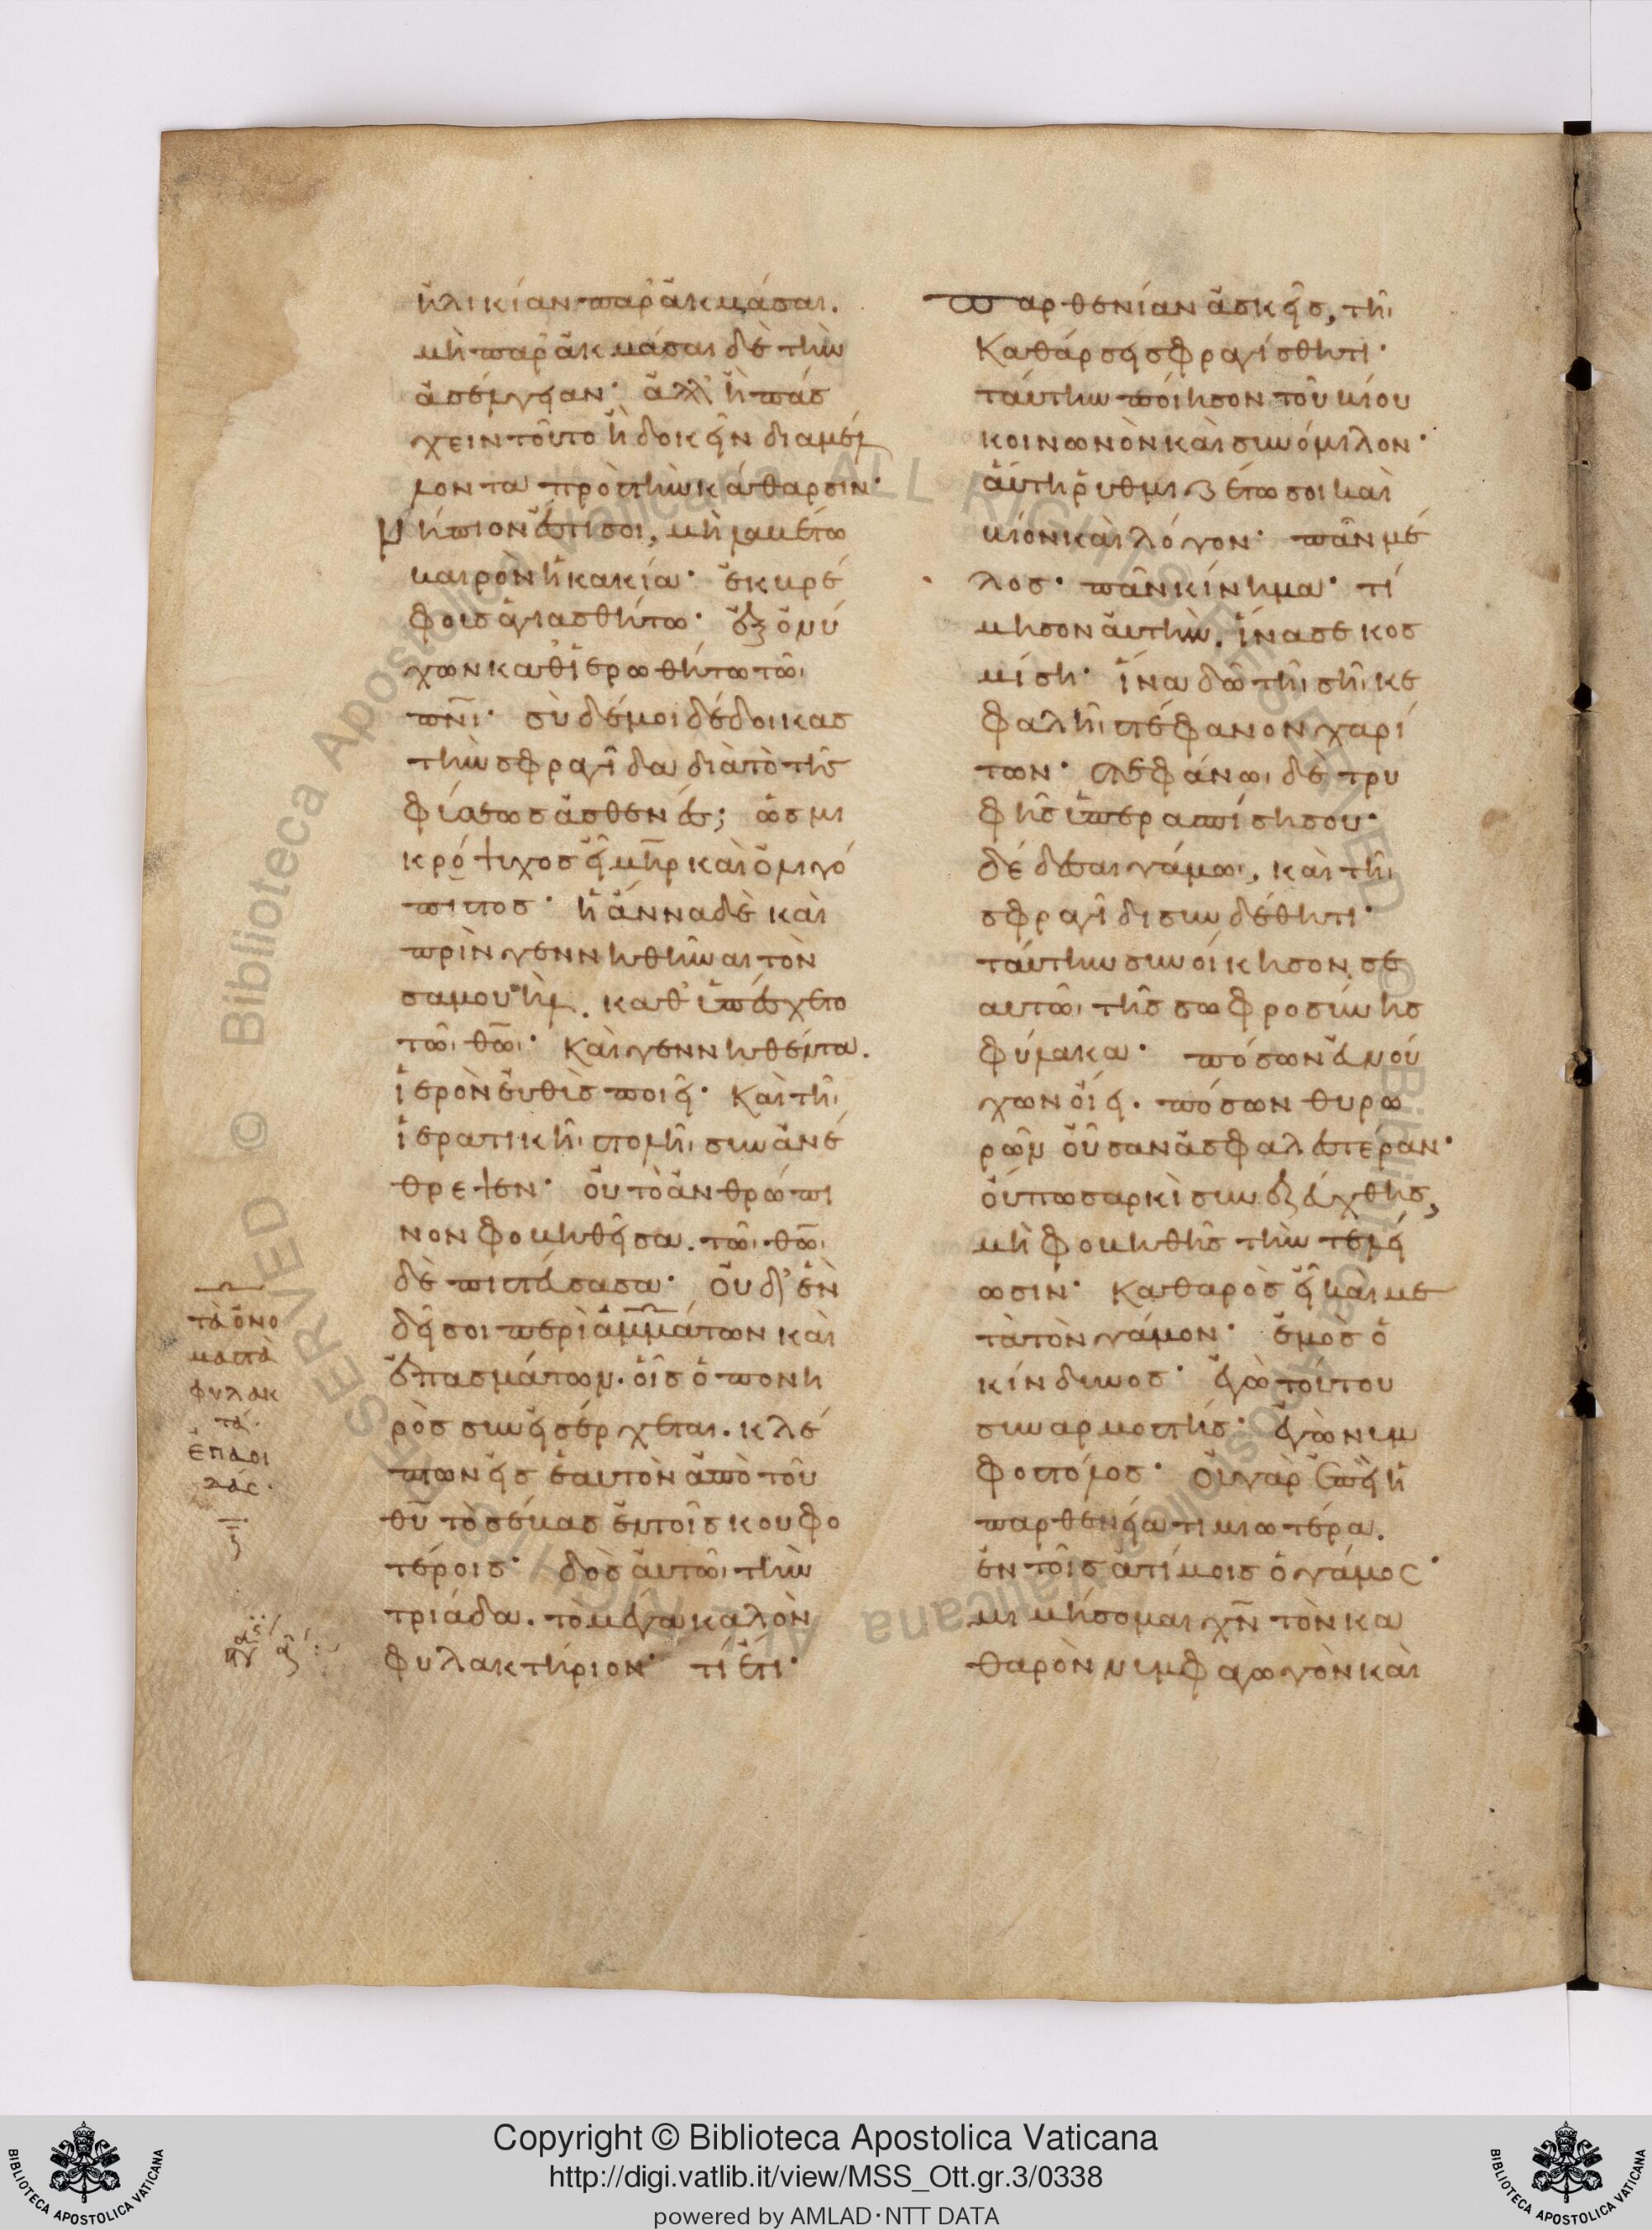 ἡλικίαν παρακμάσαι.
μὴ παρακμάσαι δὲ τὴν
ἀσέλγειαν· ἀλλ' ἢ πάσ
χειν τοῦτο ἢ δοκεῖν διαμέλ
λοντα πρὸς τὴν κάθαρσιν·
Νήπιον ἐστι σοι, μὴ λαβέτω
καιρὸν ἡ κακία· ἐκ βρέ
φους ἁγιασθήτω· ἐξ ὀνύ
χων καθιερωθήτω τῶι
πνι· σὺ δέ μοι δέδοικας
τὴν σφραγίδα διὰ τὸ τῆς
φύσεως ἀσθενές; ὡς μι
κρόψυχος εἶ μηρ καὶ ὀλιγό
πιστος· ἡ ἄννα δὲ καὶ
πρὶν γεννηθῆναι τὸν
σαμουὴλ. καθ' ὑπέσχετο
τῶι θῶι· καὶ γεννηθέντα.
ἱερὸν εὐθὺς ποιεῖ· καὶ τῆι
ἱερατικῆι στολῆι συνανέ
θρεψεν· οὐ τὸ ἀνθρώπι
νον φοβηθεῖσα. τῶι θῶι
δὲ πιστεύσασα· οὐδ' ἓν
δεῖ σοι περιαμμάτων καὶ
ἐπασμάτων. οἷς ὁ πονη
ρὸς συνεισέρχεται. κλέ
πτων εἰς ἑαυτὸν ἀπὸ τοῦ
θυ τὸ σέβας ἐν τοῖς κουφο
τέροις· δὸς αὐτῶι τὴν
τριάδα. τὸ μέγα καλὸν
φυλακτήριον· τί ἔτι·
τὰ ὀνο
μαστὰ
φυλακ
τά·
ἐπαοι
δάς·
Παρθενίαν ἀσκεῖς, τῆι
καθάρσει σφραγίσθητι·
ταύτην ποίησον τοῦ βίου
κοινωνὸν καὶ συνόμιλον·
αὕτη ῥυθμιζέτω σοι καὶ
βίον καὶ λόγον· πᾶν μέ
λος· πᾶν κίνημα· τί
μησον αὐτὴν. ἵνα σε κοσ
μήσηι· ἵνα δῶ τῆι σῆι κε
φαλῆι στέφανον χαρί
των· στεφάνωι δὲ τρυ
φῆς ὑπερασπίσηι σου·
δέδεσαι γάμωι, καὶ τῆι
σφραγίδι συνδέθητι·
ταύτην συνοίκησον σε
αυτῶι τῆς σωφροσύνης
φύλακα· πόσων εὐνού
χων οἴει. πόσων θυρω
ρῶν οὖσαν ἀσφαλεστέραν·
οὔπω σαρκὶ συνεζεύχθης,
μὴ φοβηθῆις τὴν τελεί
ωσιν· καθαρὸς εἶ καὶ με
τὰ τὸν γάμον· ἐμὸς ὁ
κίνδυνος· ἐγὼ τούτου
συναρμοστής· ἐγὼ νυμ
φοστόλος· οὐ γὰρ ἐπεὶ ἡ
παρθενεία τιμιωτέρα.
ἐν τοῖς ἀτίμοις ὁ γάμος·
μιμήσομαι χν τὸν κα
θαρὸν νυμφαγωγὸν καὶ
Copyright © Biblioteca Apostolica Vaticana
http://digi.vatlib.it/view/MSS_Ott.gr.3/0338
powered by AMLAD·NTT DATA
BIBLIOTECA APOSTOLICA VATICANA
BIBLIOTECA APOSTOLICA VATICANA